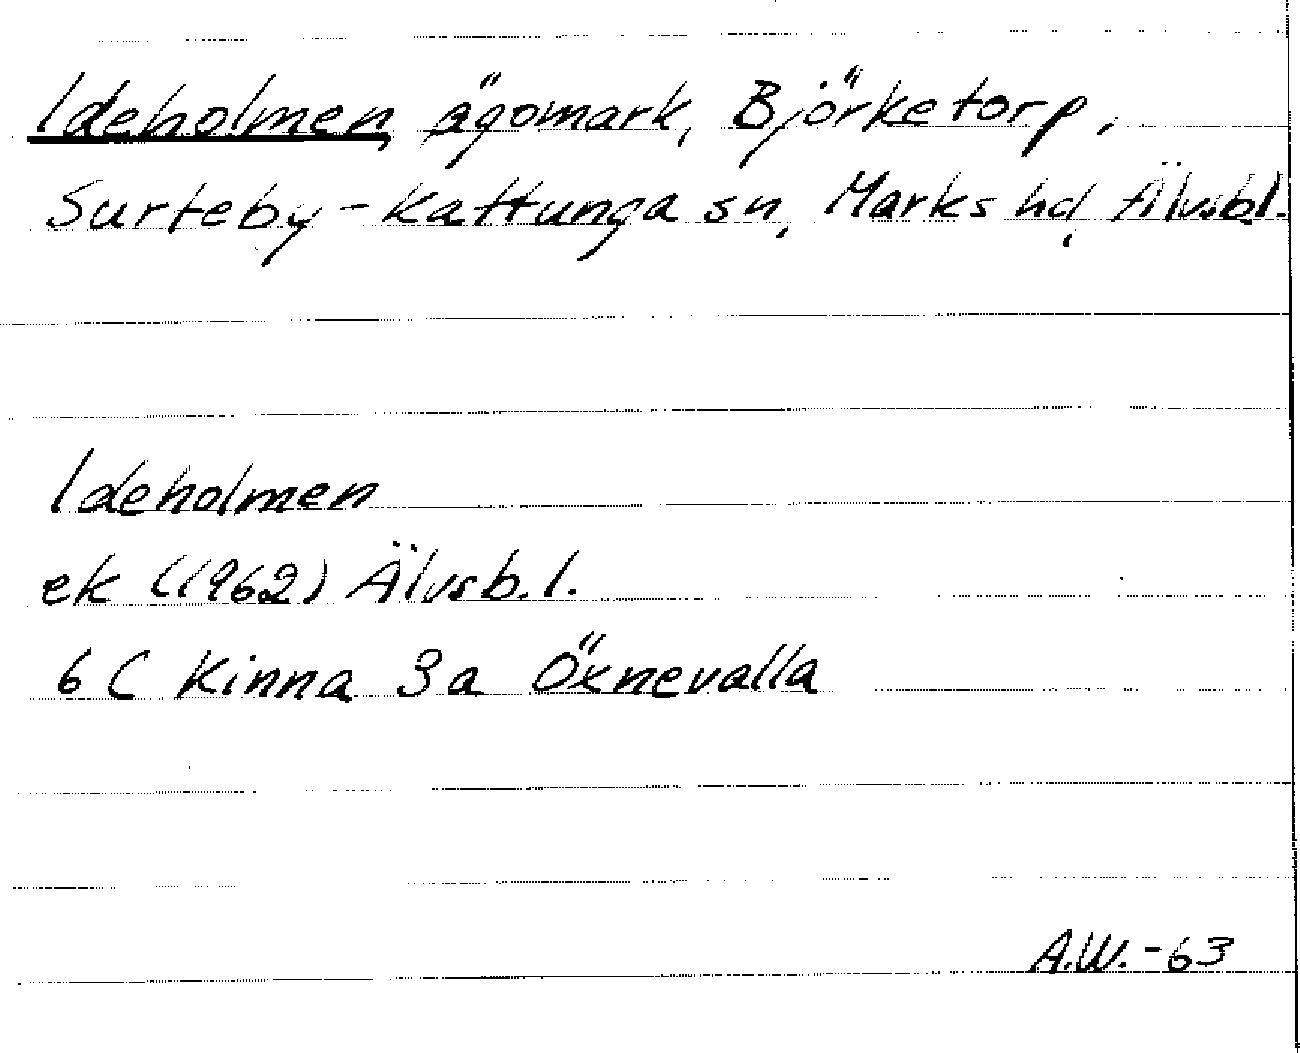 Ideholmen, ägomark, Björketorp,
Surteby-Kattunga sn, Marks hd, Älvsb.l.
Ideholmen
ek (1962) Älvsb.l.
6 C Kinna 3a Öxnevalla
A.W.-63